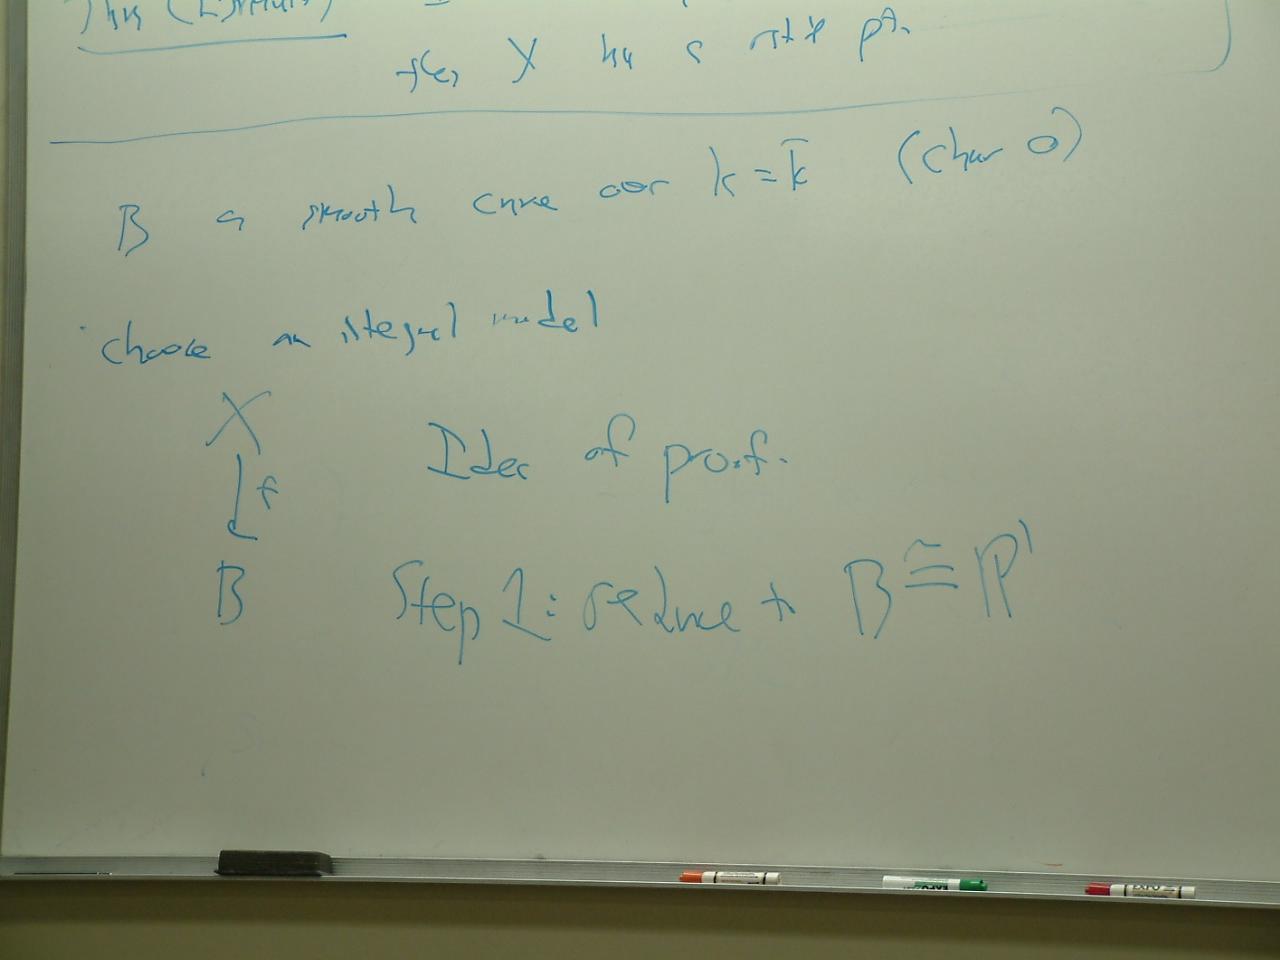 Thm (Esnault)
then X has a rat'l pt.
B a smooth curve over k = k̄ (char 0)
choose an integral model
X
f
B
Idea of proof.
Step 1: reduce to B ≅ ℙ¹
EXPO
EXPO